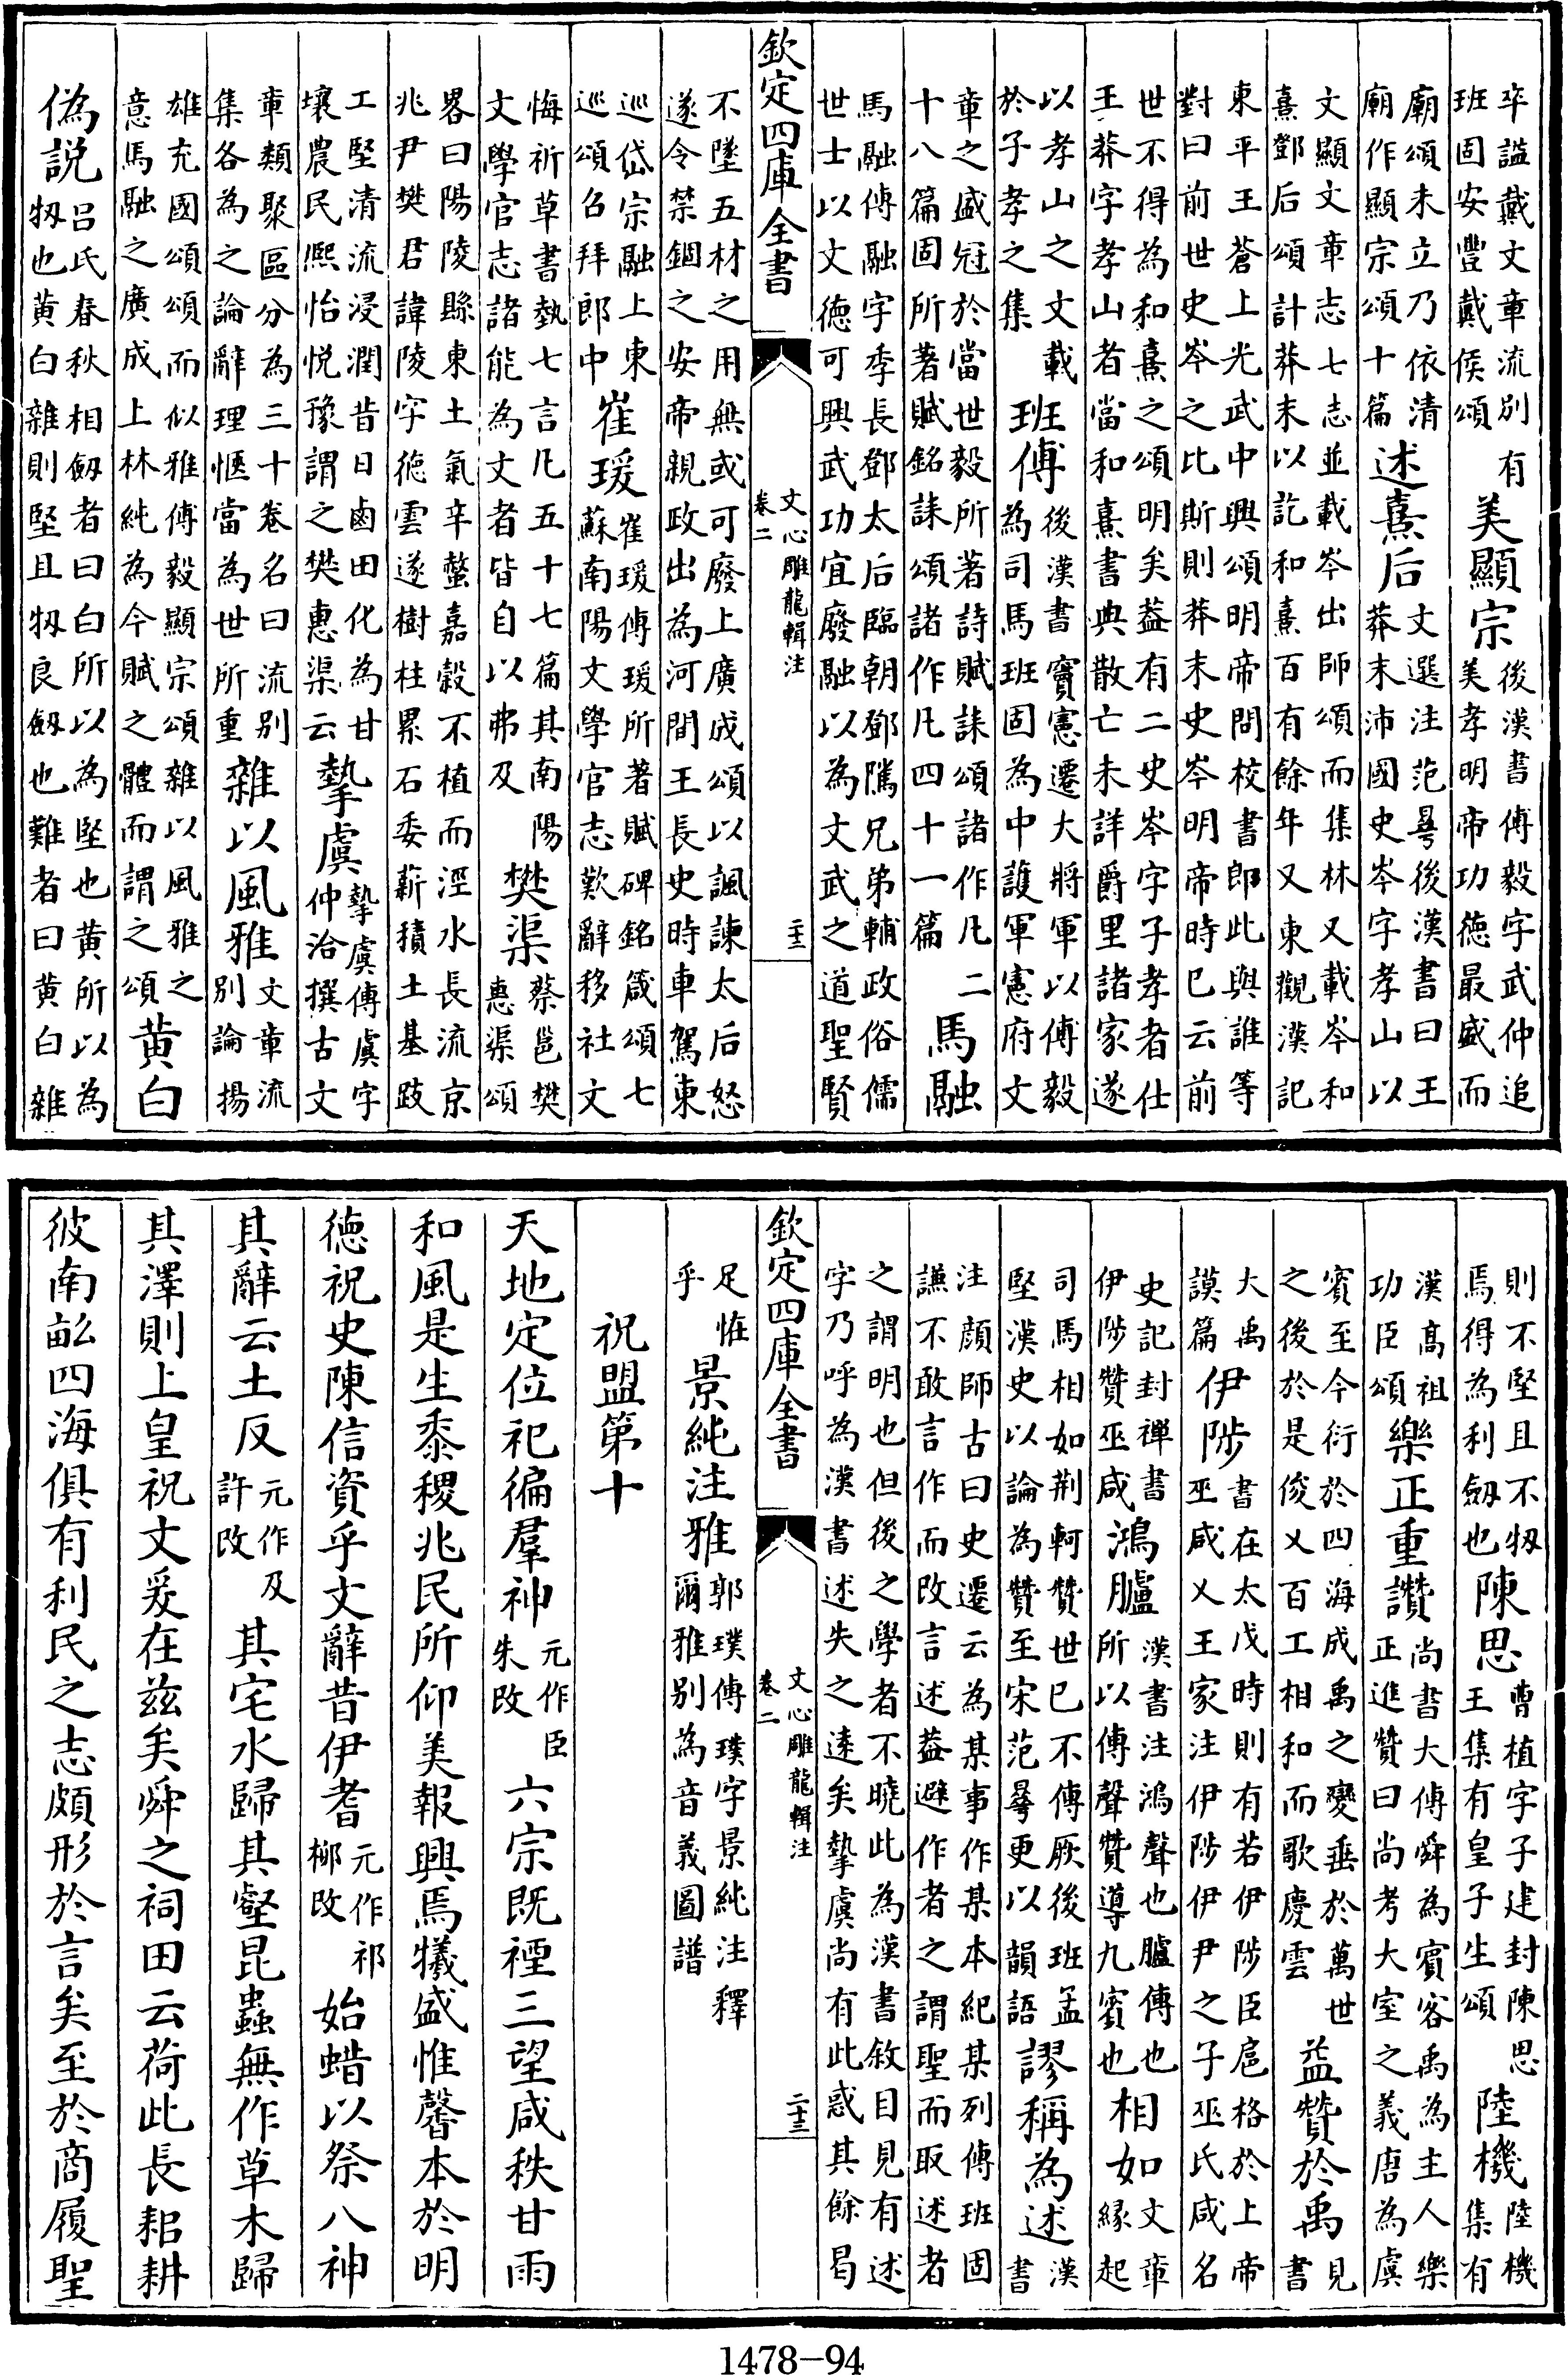 卒諡戴文章流別有班固安豐戴侯頌美顯宗後漢書傅毅字武仲追美孝明帝功德最盛而
廟頌未立乃依清廟作顯宗頌十篇述熹后文選注范曅後漢書曰王莽末沛國史岑字孝山以
文顯文章志七志並載岑出師頌而集林又載岑和熹鄧后頌計莽末以訖和熹百有餘年又東觀漢記
東平王蒼上光武中興頌明帝問校書郎此與誰等對曰前世史岑之比斯則莽末史岑明帝時已云前
世不得為和熹之頌明矣葢有二史岑字子孝者仕王莽字孝山者當和熹書典散亡未詳爵里諸家遂
以孝山之文載於子孝之集班傅後漢書竇憲遷大將軍以傅毅為司馬班固為中護軍憲府文
章之盛冠於當世毅所著詩賦誄頌諸作凡二十八篇固所著賦銘誄頌諸作凡四十一篇馬融
馬融傅融字季長鄧太后臨朝鄧隲兄弟輔政俗儒世士以文德可興武功宜廢融以為文武之道聖賢
欽定四庫全書 文心雕龍輯注 卷二 二十二
不墜五材之用無或可廢上廣成頌以諷諫太后怒遂令禁錮之安帝親政出為河間王長史時車駕東
巡岱宗融上東巡頌召拜郎中崔瑗崔瑗傅瑗所著賦碑銘箴頌七蘇南陽文學官志歎辭移社文
悔祈草書埶七言凡五十七篇其南陽文學官志諸能為文者皆自以弗及樊渠蔡邕樊惠渠頌
畧曰陽陵縣東土氣辛螫嘉穀不植而涇水長流京兆尹樊君諱陵字德雲遂樹柱累石委薪積土基跂
工堅清流浸潤昔日鹵田化為甘壤農民熈怡悦豫謂之樊惠渠云摯虞摯虞傅虞字仲洽撰古文
章類聚區分為三十卷名曰流別集各為之論辭理愜當為世所重雜以風雅文章流別論揚
雄充國頌頌而似雅傅毅顯宗頌雜以風雅之意馬融之廣成上林純為今賦之體而謂之頌黄白
偽說呂氏春秋相劔者曰白所以為堅也黄所以為牣也黄白雜則堅且牣良劔也難者曰黄白雜
則不堅且不牣焉得為利劔也陳思曹植字子建封陳思王集有皇子生頌陸機陸機集有
漢高祖功臣頌樂正重讚尚書大傅舜為賓客禹為主人樂正進贊曰尚考大室之義唐為虞
賓至今衍於四海成禹之變垂於萬世之後於是俊乂百工相和而歌慶雲益贊於禹見書
大禹謨篇伊陟書在太戊時則有若伊陟臣扈格於上帝巫咸乂王家注伊陟伊尹之子巫氏咸名
史記封禪書伊陟贊巫咸鴻臚漢書注鴻聲也臚傳也所以傳聲贊導九賓也相如文章緣起
司馬相如荆軻贊世已不傳厥後班孟堅漢史以論為贊至宋范曅更以韻語謬稱為述漢書
注顏師古曰史遷云為某事作某本紀某列傳班固謙不敢言作而改言述葢避作者之謂聖而取述者
之謂明也但後之學者不曉此為漢書敘目見有述字乃呼為漢書述失之逺矣摯虞尚有此惑其餘曷
欽定四庫全書 文心雕龍輯注 卷二 二十三
足恠乎景純注雅郭璞傳璞字景純注釋爾雅別為音義圖譜
祝盟第十
天地定位祀徧羣神元作臣朱改六宗既禋三望咸秩甘雨
和風是生黍稷兆民所仰美報興焉犧盛惟馨本於明
德祝史陳信資乎文辭昔伊耆元作祁柳改始蜡以祭八神
其辭云土反元作及許改其宅水歸其壑昆蟲無作草木歸
其澤則上皇祝文爰在兹矣舜之祠田云荷此長耜耕
彼南畝四海俱有利民之志頗形於言矣至於商履聖
1478-94